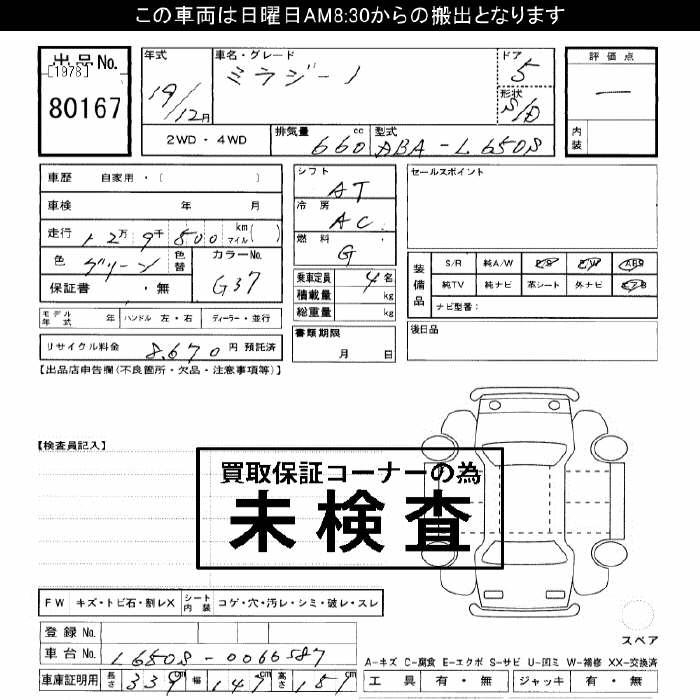 この車両は日曜日AM8:30からの搬出となります
出品No.
[1978]
80167
年式
19/12月
車名・グレード
ミラジーノ
ドア
5
形状
S/D
評価点
一
内装
2WD・4WD
排気量
660 cc
型式
ABA-L650S
車歴 自家用・( )
車検 年 月
走行 12万 9千 800 km マイル( )
色 グリーン 色替
カラーNo.
G37
保証書 ・無
シフト
AT
冷房
AC
燃料
G
乗車定員 4名
積載量 kg
総重量 kg
セールスポイント
装備品
S/R 純A/W P/S P/W ABS
純TV 純ナビ 革シート 外ナビ エアB
ナビ型番:
モデル年式 年 ハンドル 左・右 ディーラー・並行
リサイクル料金 8,670 円 預託済
書類期限
月 日
後日品
【出品店申告欄(不良箇所・欠品・注意事項等)】
【検査員記入】
買取保証コーナーの為
未検査
FW キズ・トビ石・割レX シート内装 コゲ・穴・汚レ・シミ・破レ・スレ
登録No.
車台No. L650S-0066587
車庫証明用 長さ 339cm 幅 147cm 高さ 151cm
スペア
A-キズ C-腐食 E-エクボ S-サビ U-凹ミ W-補修 XX-交換済
工具 有・無 ジャッキ 有・無